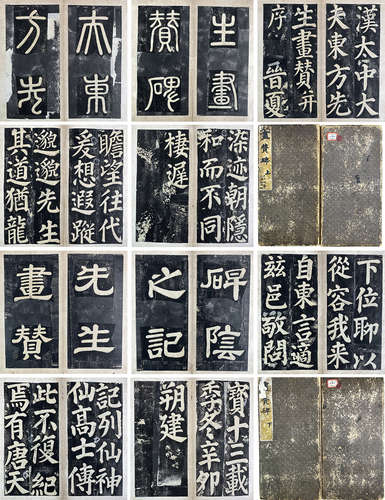 夫東
方先
生畫
贊碑
漢太中大
夫東方先
生畫贊并
序 晉夏
瞻望往代
爰想遐蹤
邈邈先生
其道猶龍
染迹朝隱
和而不同
棲遲
畫贊碑 上
先生
畫贊
碑陰
之記
下位聊以
從容我来
自東言適
茲邑敬問
記列仙神
仙高士傳
此不復紀
焉有唐天
寶十三載
季冬辛卯
朔建